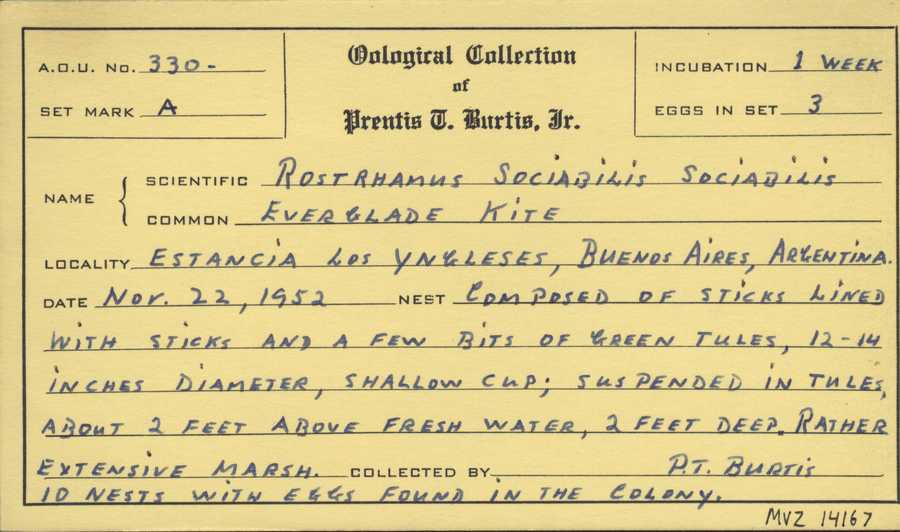 A.O.U. No. 330-
SET MARK A
Oological Collection
of
Prentis T. Burtis, Jr.
INCUBATION 1 WEEK
EGGS IN SET 3
NAME
SCIENTIFIC ROSTRHAMUS SOCIABILIS SOCIABILIS
COMMON EVERGLADE KITE
LOCALITY ESTANCIA LOS YNGLESES, BUENOS AIRES, ARGENTINA.
DATE NOV. 22, 1952 NEST COMPOSED OF STICKS LINED
WITH STICKS AND A FEW BITS OF GREEN TULES, 12-14
INCHES DIAMETER, SHALLOW CUP; SUSPENDED IN TULES,
ABOUT 2 FEET ABOVE FRESH WATER, 2 FEET DEEP. RATHER
EXTENSIVE MARSH. COLLECTED BY P.T. BURTIS
10 NESTS WITH EGGS FOUND IN THE COLONY.
MVZ 14167